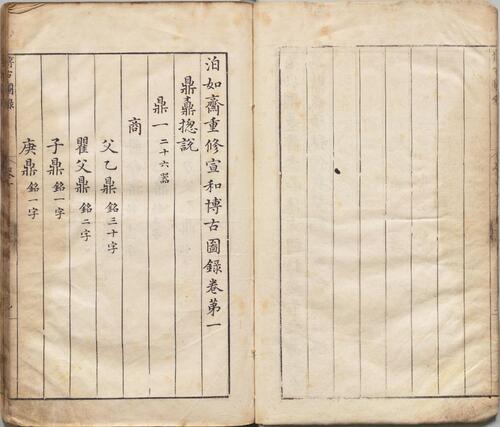 泊如齋重修宣和博古圖錄卷第一
鼎鼒揔說
鼎一 二十六器
商
父乙鼎 銘三十字
瞿父鼎 銘二字
子鼎 銘一字
庚鼎 銘一字